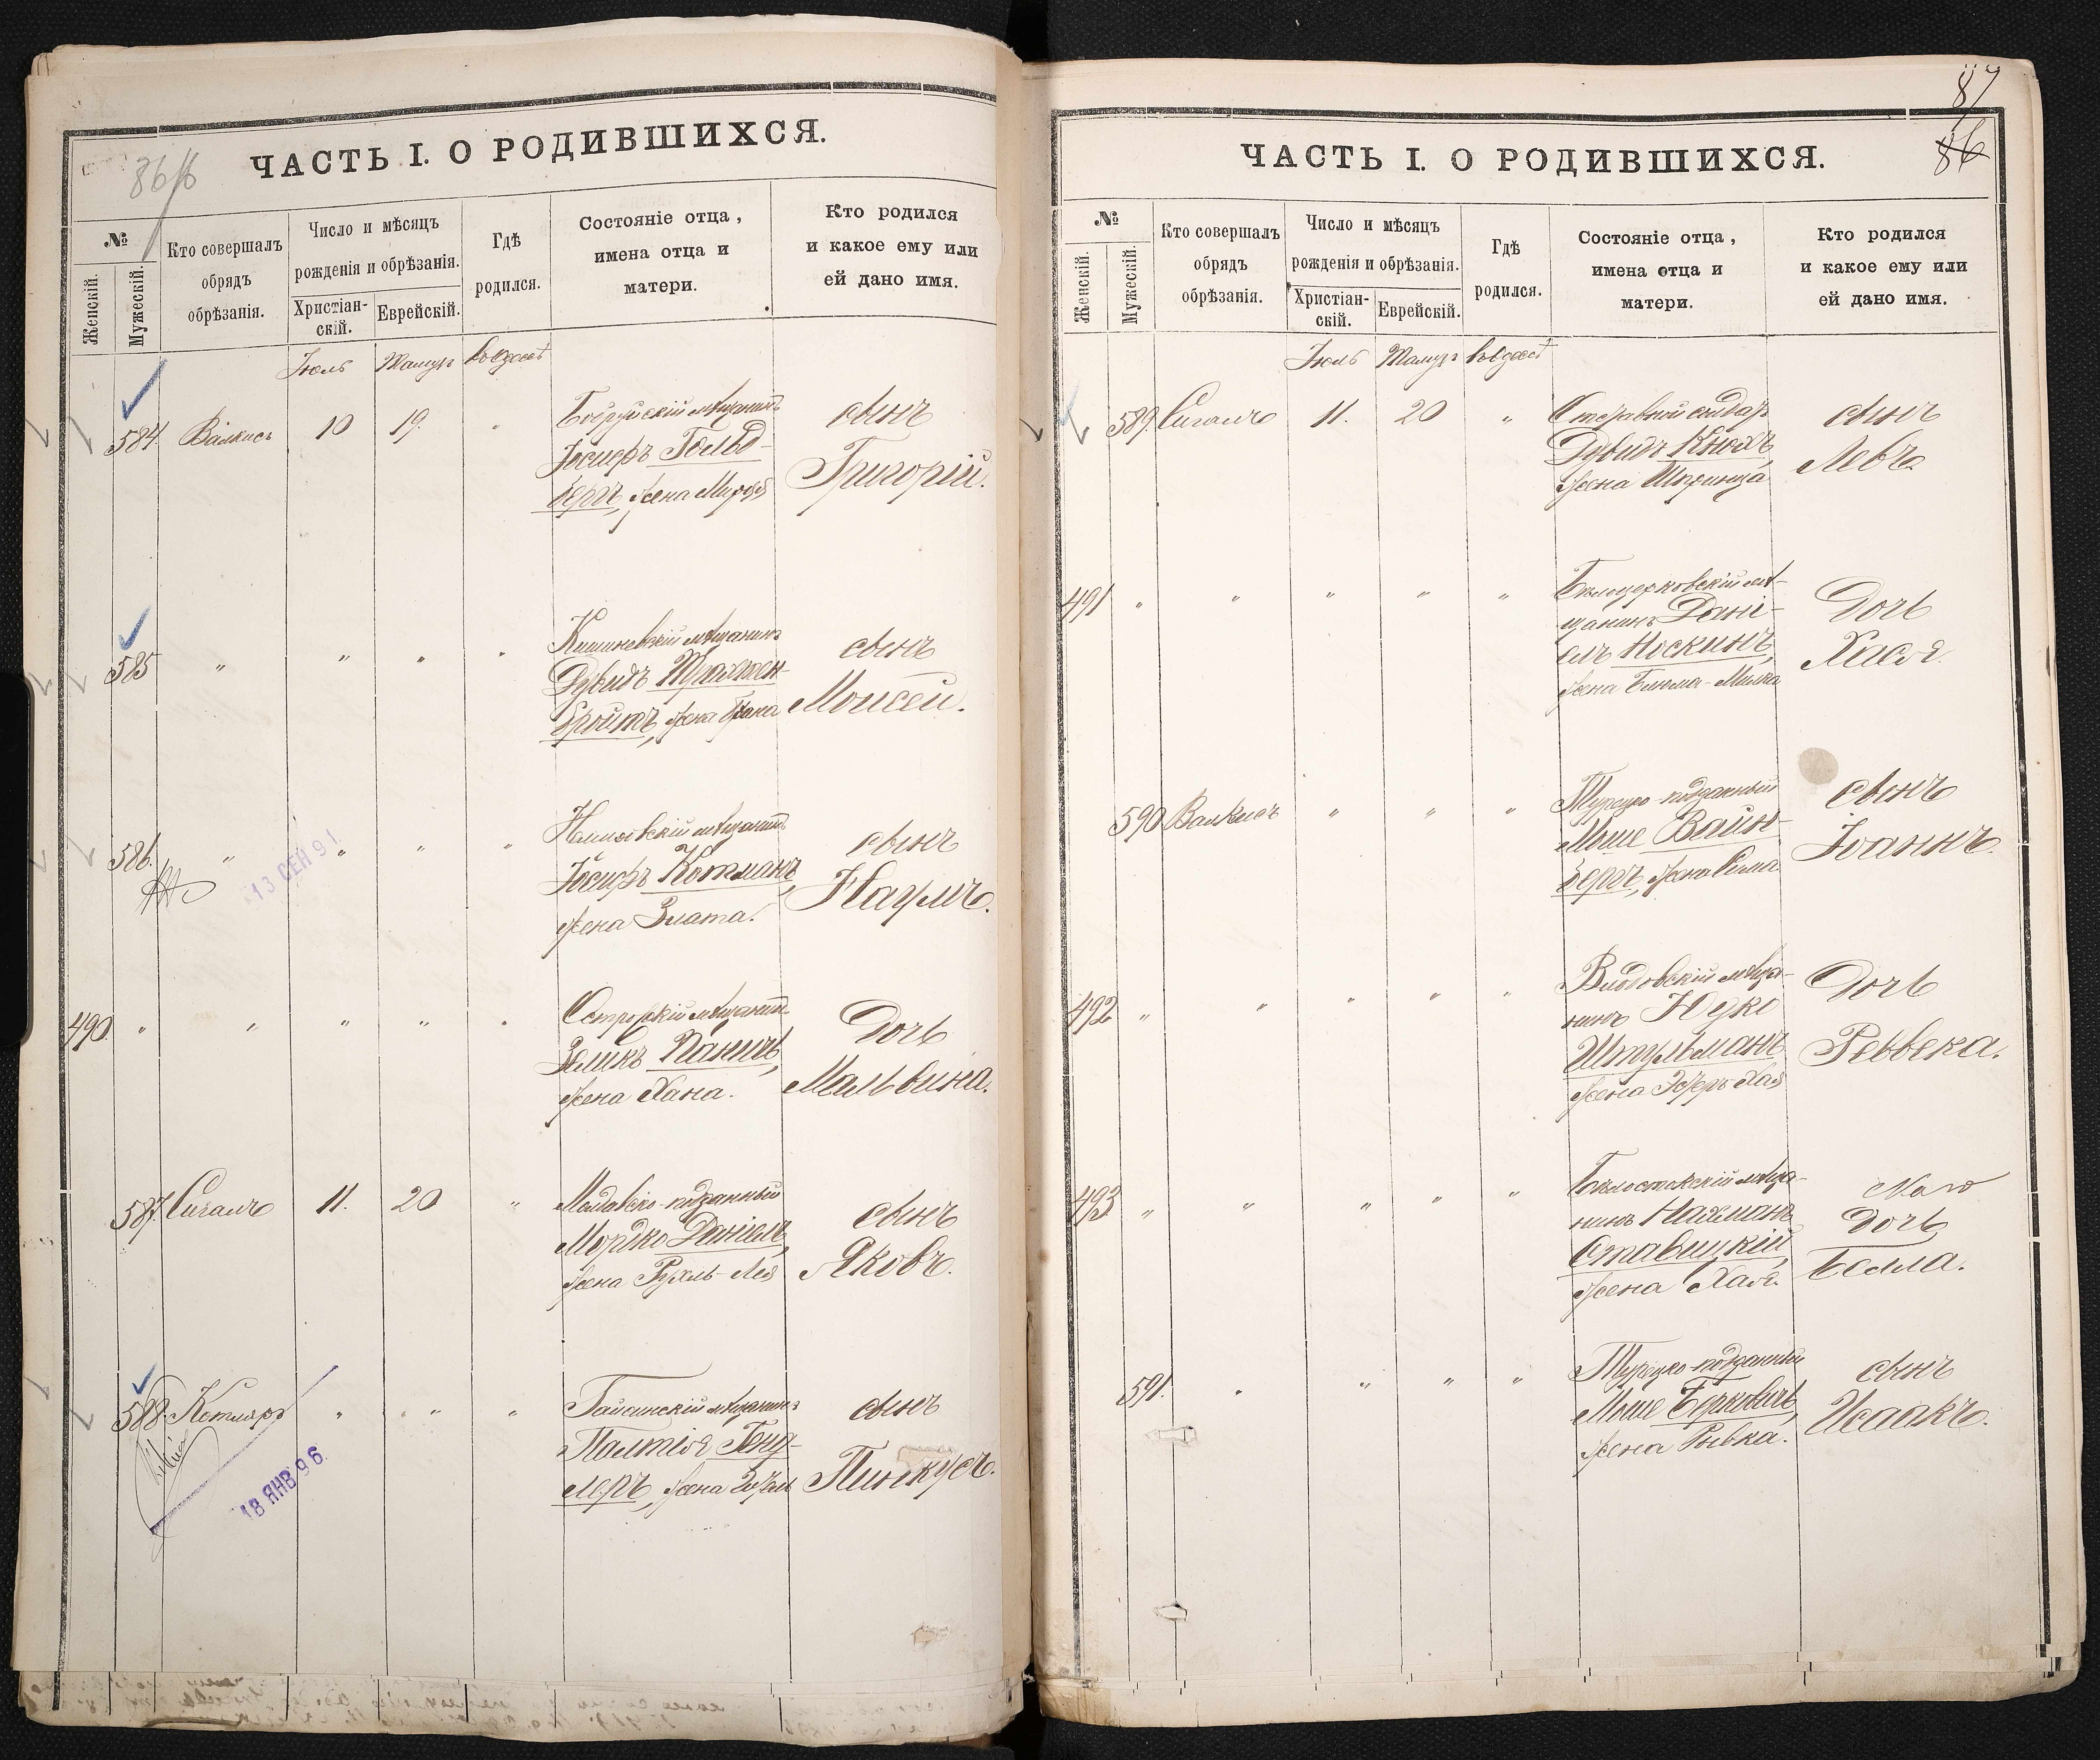 86/б
ЧАСТЬ I. О РОДИВШИХСЯ.
№
Женскій.
Мужескій.
Кто совершалъ
обрядъ
обрѣзанія.
Число и мѣсяцъ
рожденія и обрѣзанія.
Христіан-
скій.
Еврейскій.
Гдѣ
родился.
Состояніе отца,
имена отца и
матери.
Кто родился
и какое ему или
ей дано имя.
Іюль Тамузъ Въ Одессѣ
584. Валкисъ 10 19. "
Бобруйскій мѣщанинъ
Іосифъ Гольд-
бергъ, жена
сынъ
Григорій.
585 " " " "
Кишиневскій мѣщанинъ
Дувидъ Трахтен-
бройтъ, жена
сынъ
Моисей.
586. " " " "
13 СЕН 91
мѣщанинъ
Іосифъ Котманъ,
жена Злата.
сынъ
Наумъ.
490. " " " " "
мѣщанинъ
Зеликъ Паничъ,
жена Хана.
Дочь
Мальвина.
587. Сигалъ 11. 20 "
Молдавско-подданный
Мордко Даніель,
жена Рухль-Лея
сынъ
Яковъ.
588. Котляръ " " "
18 ЯНВ 96.
Гайсинскій мѣщанинъ
Палтіэ Генд-
леръ, жена
сынъ
Пинкусъ.
87
86
ЧАСТЬ I. О РОДИВШИХСЯ.
№
Женскій.
Мужескій.
Кто совершалъ
обрядъ
обрѣзанія.
Число и мѣсяцъ
рожденія и обрѣзанія.
Христіан-
скій.
Еврейскій.
Гдѣ
родился.
Состояніе отца,
имена отца и
матери.
Кто родился
и какое ему или
ей дано имя.
Іюль Тамузъ Въ Одессѣ
589. Сигалъ 11. 20 "
Отставной солдатъ
Дувидъ Кнохъ,
жена Шпринца
сынъ
Левъ.
491 " " " " "
Бѣлоцерковскій мѣ-
щанинъ Дані-
елъ Носкинъ,
жена Блюма-Милка
Дочь
Хася.
590 Валкисъ " " "
Турецко-подданный
Моше Вайн-
бергъ, жена
сынъ
Іоаннъ.
492 " " " " "
мѣща-
нинъ Юдко
Штульманъ,
жена Эстеръ Хая
Дочь
Реввека.
493. " " " " "
Бѣлостокскій мѣща-
нинъ Нахманъ
Ставицкій,
жена Хая.
Дочь
Белла.
591. " " " "
Турецко-подданный
Моше Берковичъ,
жена Рывка.
сынъ
Исаакъ.